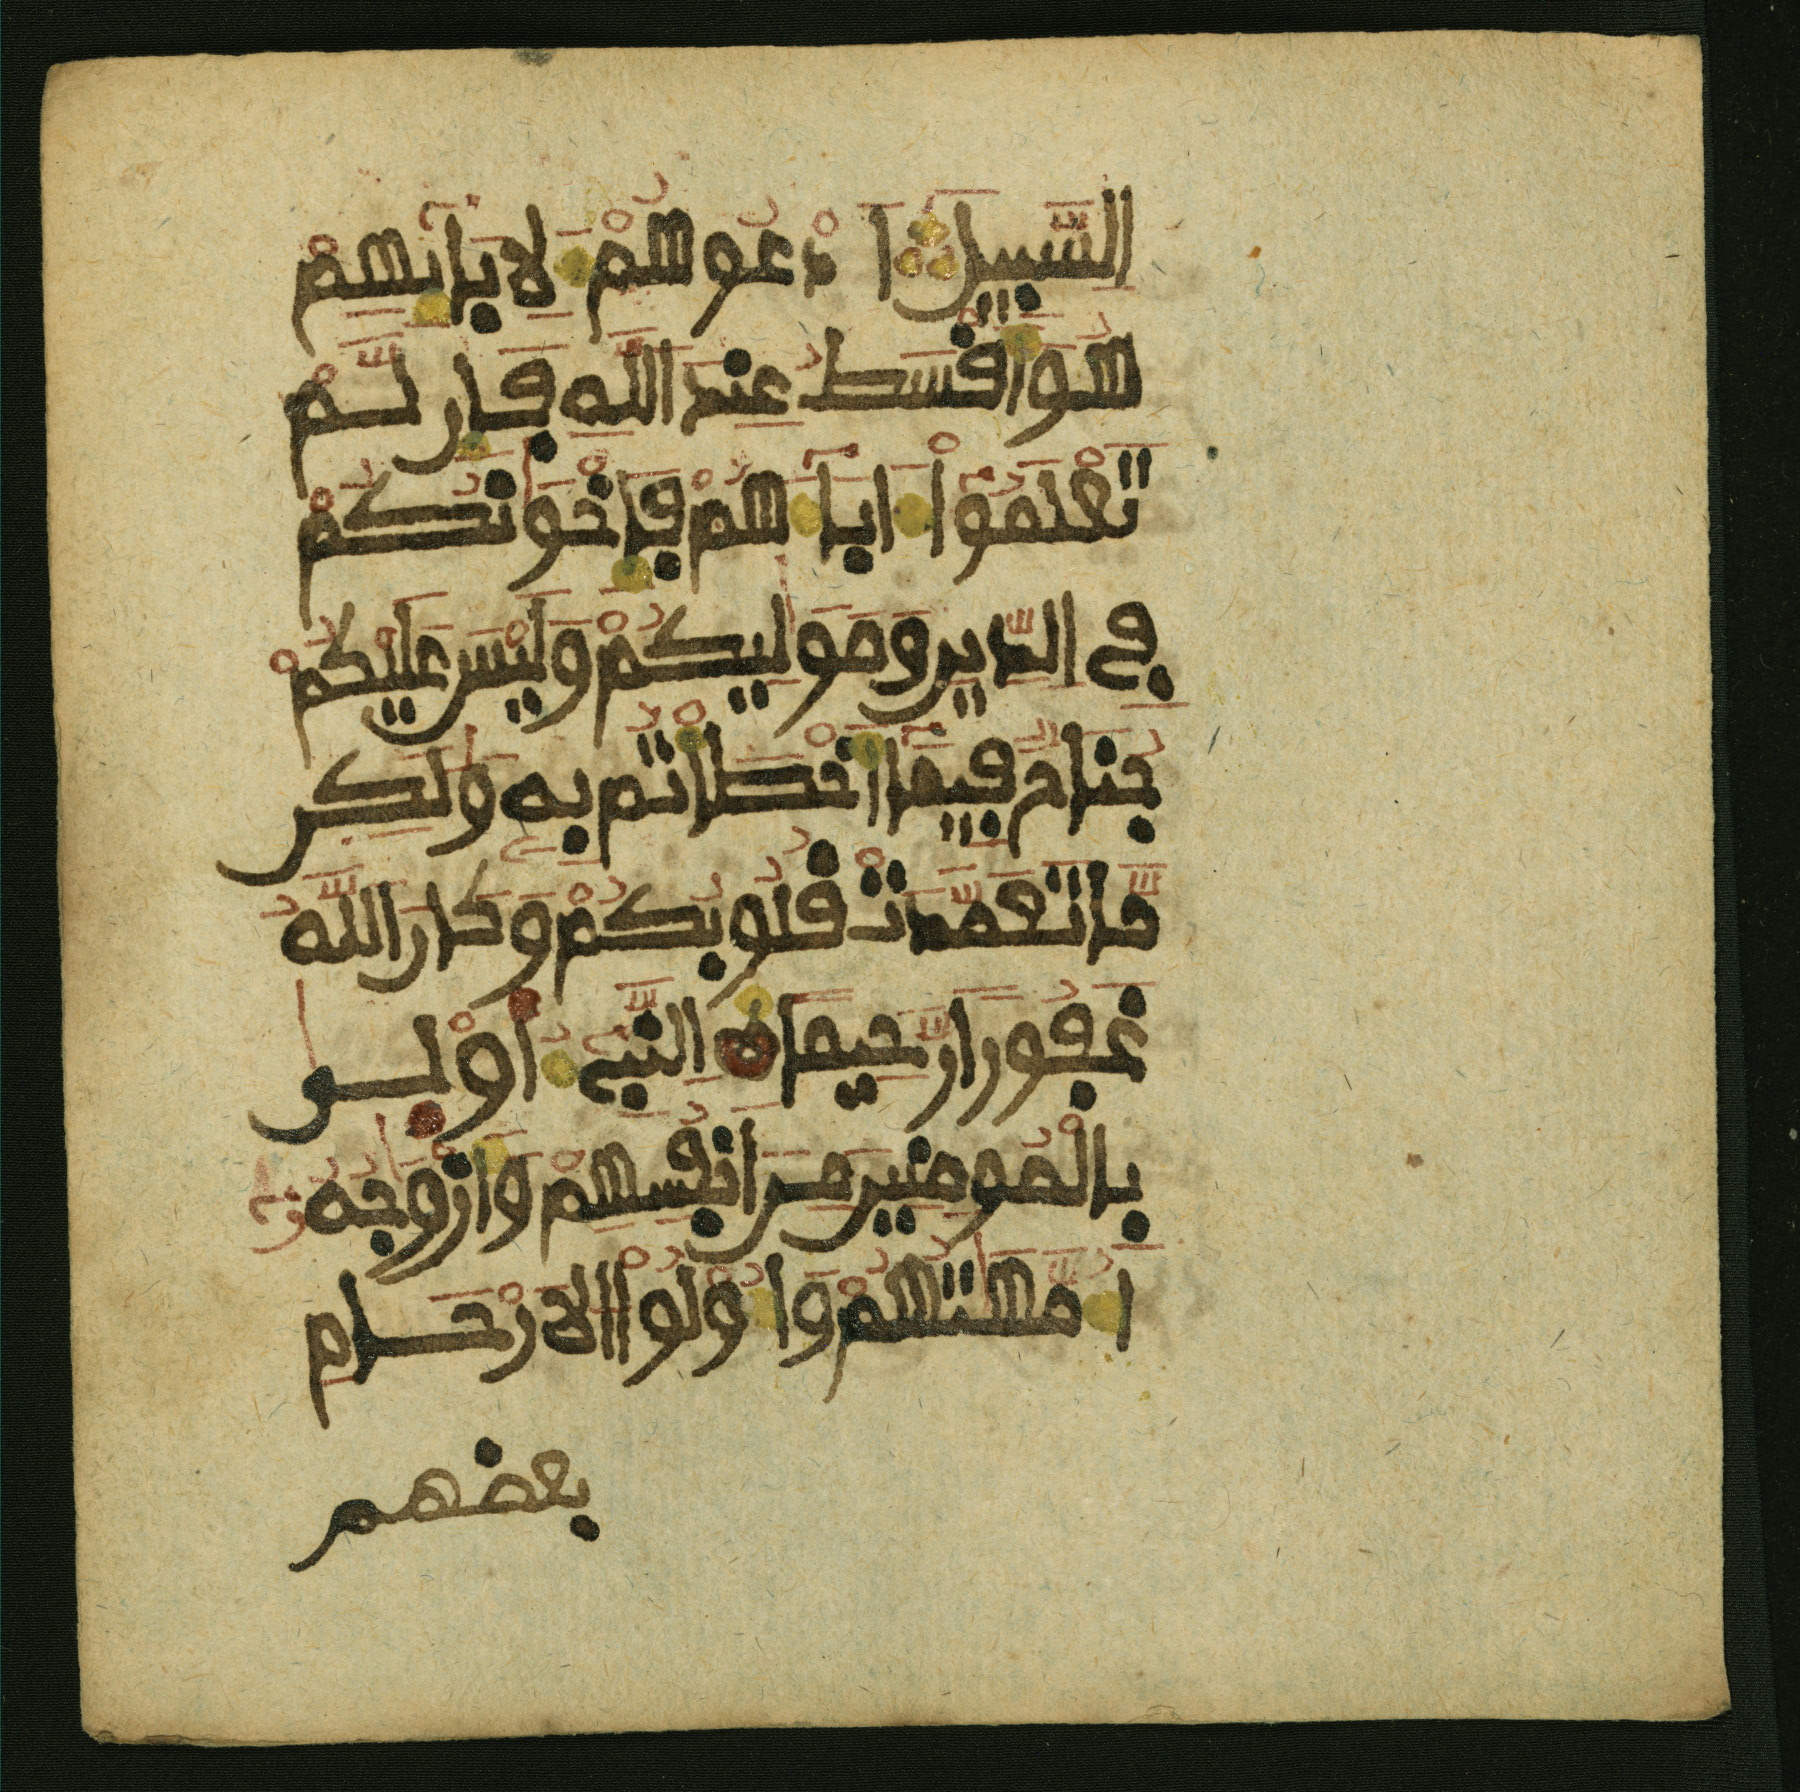 السَّبِيلَ ۝ اُدْعُوهُمْ لِأَبَآئِهِمْ
هُوَ أَفْسَطُ عِندَ اللَّهِ فَإِن لَّمْ
تَعْلَمُوٓاْ ءَابَآءَهُمْ فَإِخْوَٰنُكُمْ
فِے الدِّينِ وَمَوَٰلِيكُمْ وَلَيْسَ عَلَيْكُمْ
جُنَاحٌ فِيمَآ أَخْطَأْتُم بِهِۦ وَلَٰكِن
مَّا تَعَمَّدَتْ قُلُوبُكُمْ وَكَانَ اللَّهُ
غَفُورًا رَّحِيمًا ه النَّبِےٓءُ أَوْلَىٰ
بِالْمُومِنِينَ مِنَ انفُسِهِمْ وَأَزْوَٰجُهُۥٓ
أُمَّهَٰتُهُمْ وَأُوْلُواْ الَارْحَامِ
بعضهم